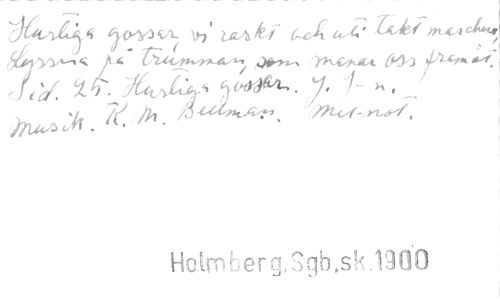 Hurtiga gossar, vi raskt och uti takt marschera,
Lyssna på trumman, som manar oss framåt.
Sid. 25. Hurtiga gossar. J. J-n.
Musik. K. M. Bellman. Mel-not.
Holmberg, Sgb, sk. 1900